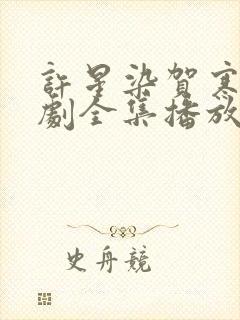 許星染賀寒
劇全集播放
史舟競